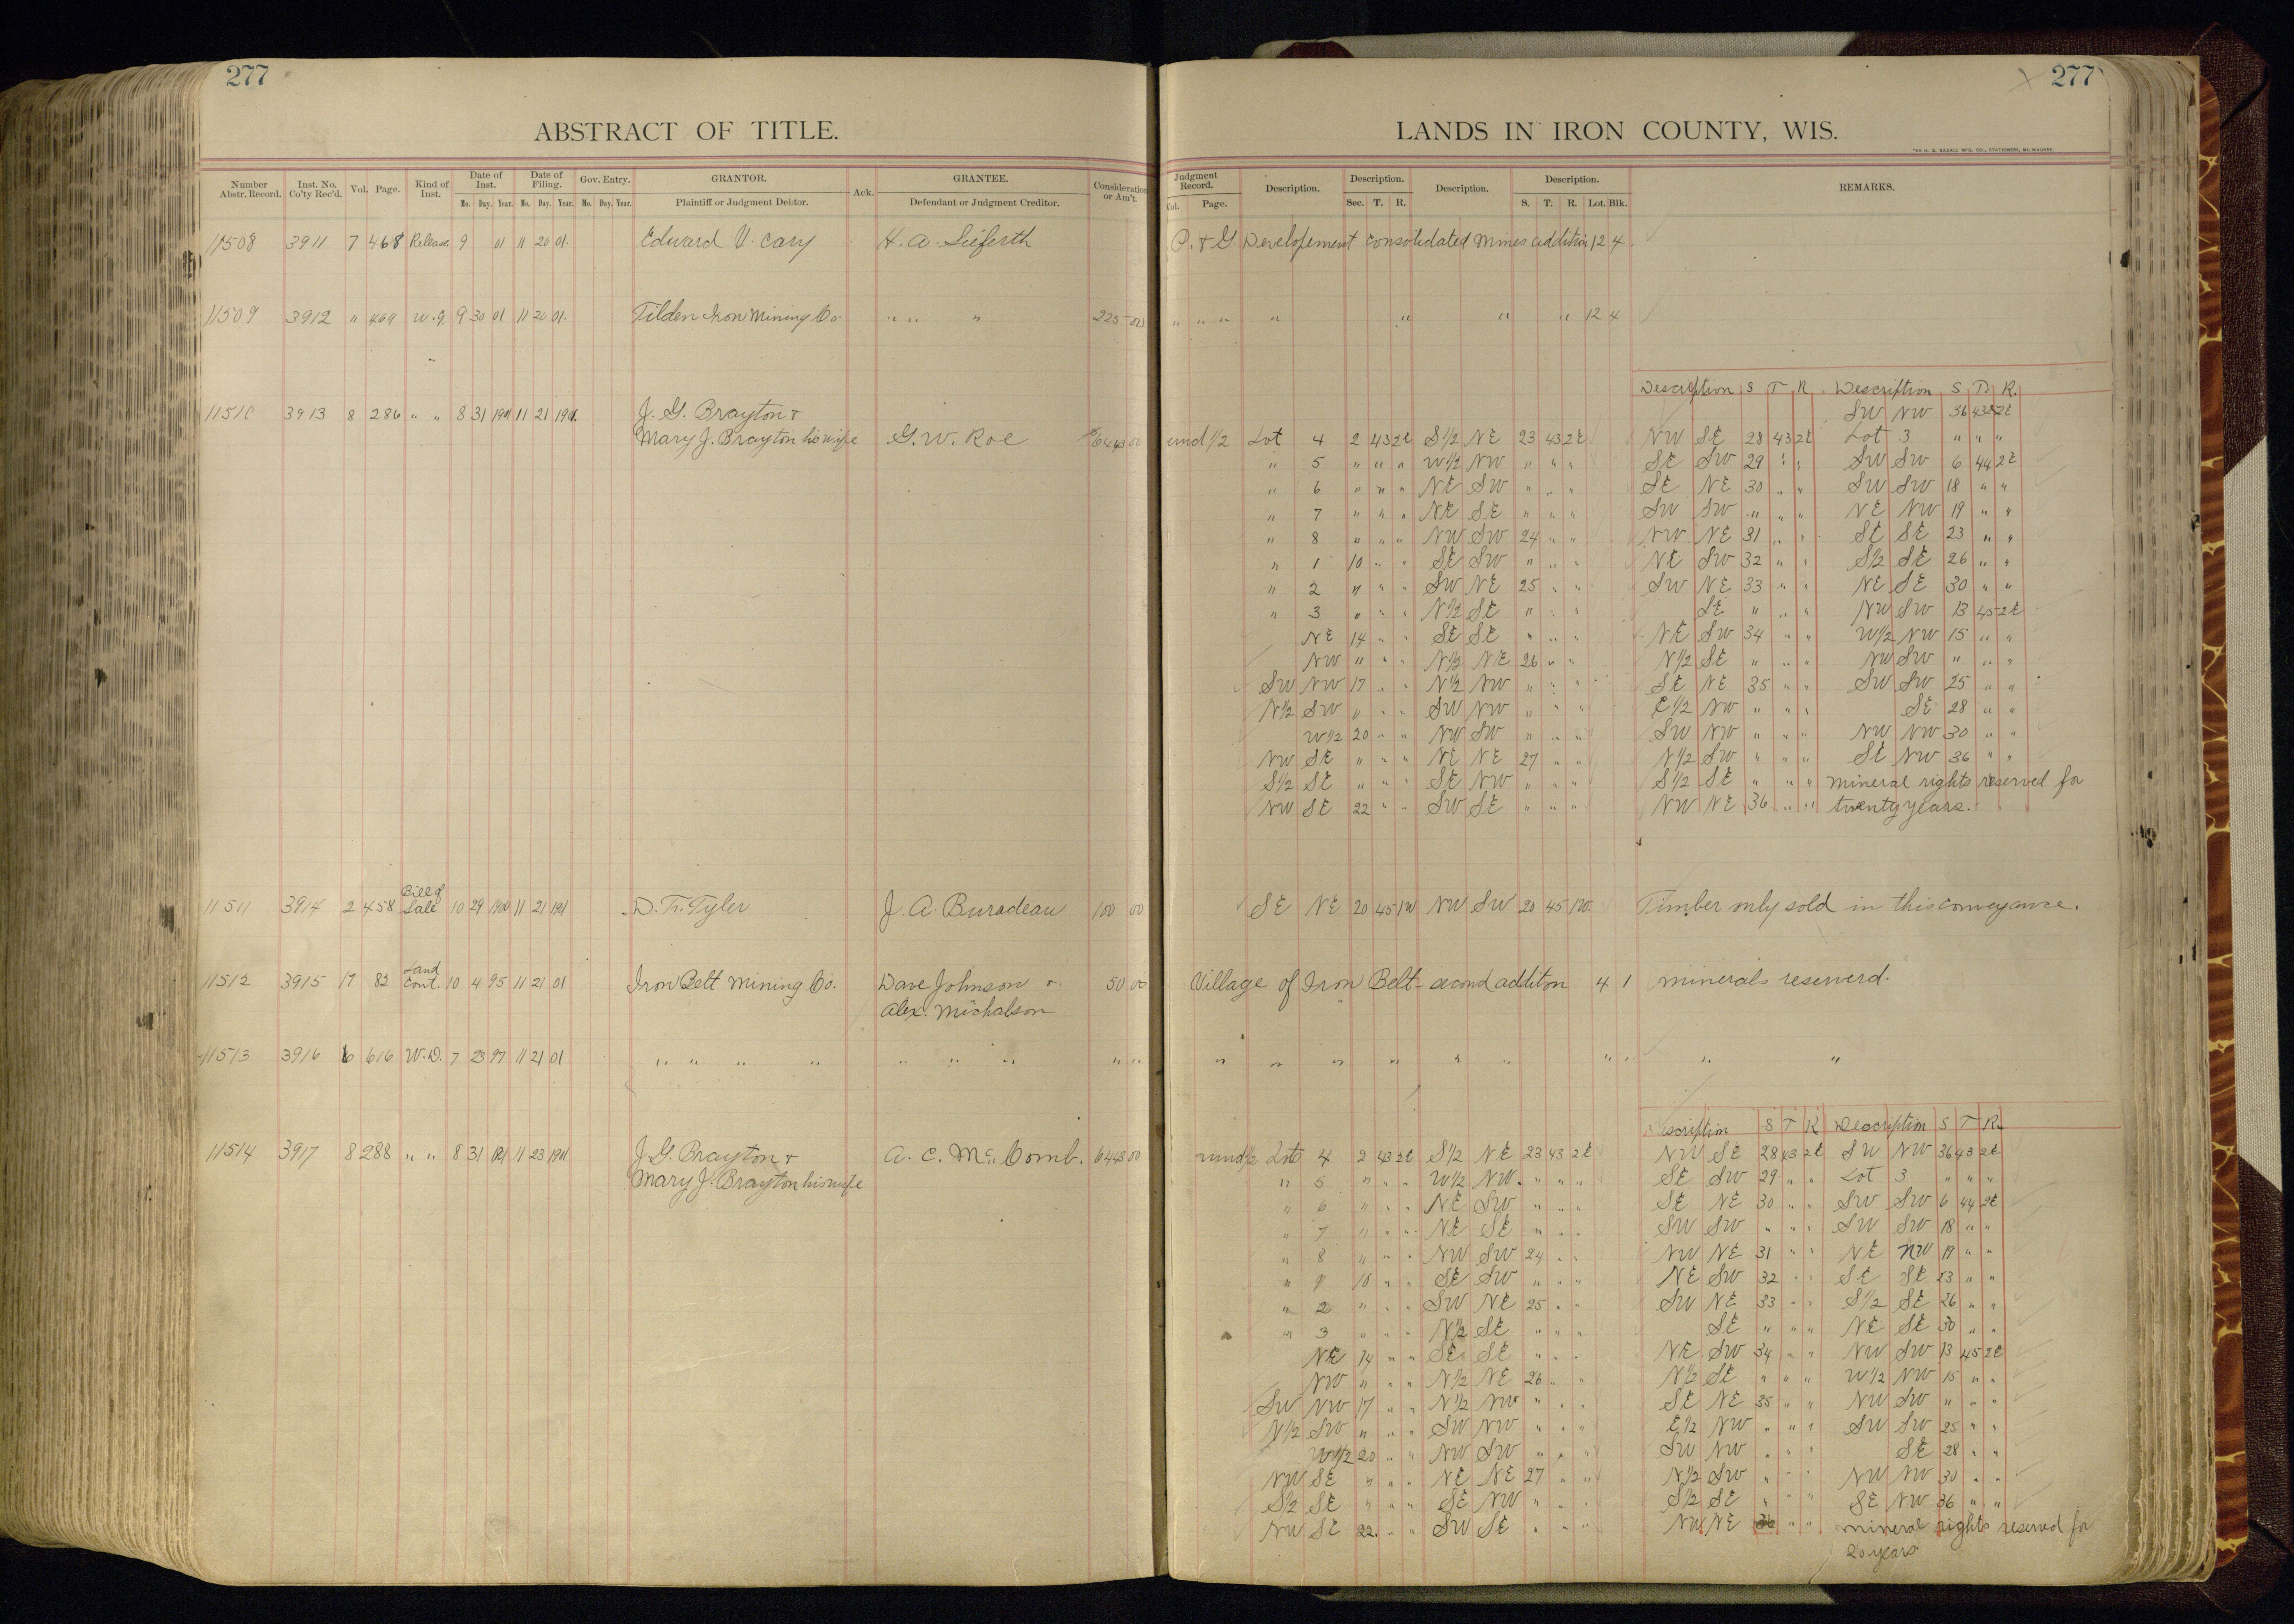 277
ABSTRACT OF TITLE.
Number Abstr. Record. Inst. No. Co'ty Rec'd. Vol. Page. Kind of Inst. Date of Inst. Mo. Day. Year. Date of Filing. Mo. Day. Year. Gov. Entry. Mo. Day. Year. GRANTOR. Plaintiff or Judgment Debtor. Ack. GRANTEE. Defendant or Judgment Creditor. Consideration or Am't.
11508 3911 7 468 Release 9 01 11 20 01. Edward V. Cary H. A. Seiferth
11509 3912 " 469 W.G. 9 30 01 11 20 01. Tilden Iron Mining Co. " " " 225 00
11510 3913 8 286 " " 8 31 1901 11 21 1901. J. G. Brayton &
Mary J. Brayton his wife G. W. Roe 6443 00
11511 3914 2 458 Bill of Sale 10 29 1900 11 21 1901 D. Tr. Tyler J. A. Buradeau 100 00
11512 3915 17 82 Land Cont. 10 4 95 11 21 01 Iron Belt Mining Co. Dave Johnson & 50 00
Alex. Michalson
11513 3916 6 616 W.D. 7 23 97 11 21 01 " " " " " " " " "
11514 3917 8 288 " " 8 31 1901 11 23 1901 J. G. Brayton & A. C. McComb. 6443 00
Mary J. Brayton his wife
277
LANDS IN IRON COUNTY, WIS.
Judgment Record. Vol. Page. Description. Description. Sec. T. R. Description. Description. S. T. R. Lot. Blk. REMARKS.
P. & G. Developement Consolidated Mines addition 12 4
" " " " " " " 12 4
Description S T R Description S T R.
SW NW 36 43 2E
und 1/2 Lot 4 2 43 2E S1/2 NE 23 43 2E NW SE 28 43 2E Lot 3 " " "
" 5 " " " W1/2 NW " " " SE SW 29 " " SW SW 6 44 2E
" 6 " " " NE SW " " " SE NE 30 " " SW SW 18 " "
" 7 " " " NE SE " " " SW SW " " " NE NW 19 " "
" 8 " " " NW SW 24 " " NW NE 31 " " SE SE 23 " "
" 1 10 " " SE SW " " " NE SW 32 " " S1/2 SE 26 " "
" 2 " " " SW NE 25 " " SW NE 33 " " NE SE 30 " "
" 3 " " " N1/2 SE " " " SE " " " NW SW 13 45 2E
NE 14 " " SE SE " " " NE SW 34 " " W1/2 NW 15 " "
NW " " " N1/2 NE 26 " " N1/2 SE " " " NW SW " " "
SW NW 17 " " N1/2 NW " " " SE NE 35 " " SW SW 25 " "
N1/2 SW " " " SW NW " " " E1/2 NW " " " SE 28 " "
W1/2 20 " " NW SW " " " SW NW " " " NW NW 30 " "
NW SE " " " NE NE 27 " " N1/2 SW " " " SE NW 36 " "
S1/2 SE " " " SE NW " " " S1/2 SE " " " mineral rights reserved for
NW SE 22 " " SW SE " " " NW NE 36 " " twenty years.
SE NE 20 45 1W NW SW 20 45 1W. Timber only sold in this conveyance.
Village of Iron Belt - second addition 4 1 minerals reserverd.
" " " " " " " " " "
Description S T R Description S T R.
und 1/2 Lots 4 2 43 2E S1/2 NE 23 43 2E NW SE 28 43 2E SW NW 36 43 2E
" 5 " " " W1/2 NW " " " SE SW 29 " " Lot 3 " " "
" 6 " " " NE SW " " " SE NE 30 " " SW SW 6 44 2E
" 7 " " " NE SE " " " SW SW " " " SW SW 18 " "
" 8 " " " NW SW 24 " " NW NE 31 " " NE NW 19 " "
" 1 10 " " SE SW " " " NE SW 32 " " SE SE 23 " "
" 2 " " " SW NE 25 " " SW NE 33 " " S1/2 SE 26 " "
" 3 " " " N1/2 SE " " " SE " " " NE SE 30 " "
NE 14 " " SE SE " " " NE SW 34 " " NW SW 13 45 2E
NW " " " N1/2 NE 26 " " N1/2 SE " " " W1/2 NW 15 " "
SW NW 17 " " N1/2 NW " " " SE NE 35 " " NW SW " " "
N1/2 SW " " " SW NW " " " E1/2 NW " " " SW SW 25 " "
W1/2 20 " " NW SW " " " SW NW " " " SE 28 " "
NW SE " " " NE NE 27 " " N1/2 SW " " " NW NW 30 " "
S1/2 SE " " " SE NW " " " S1/2 SE " " " SE NW 36 " "
NW SE 22 " " SW SE " " " NW NE 36 " " mineral rights reserved for
20 years